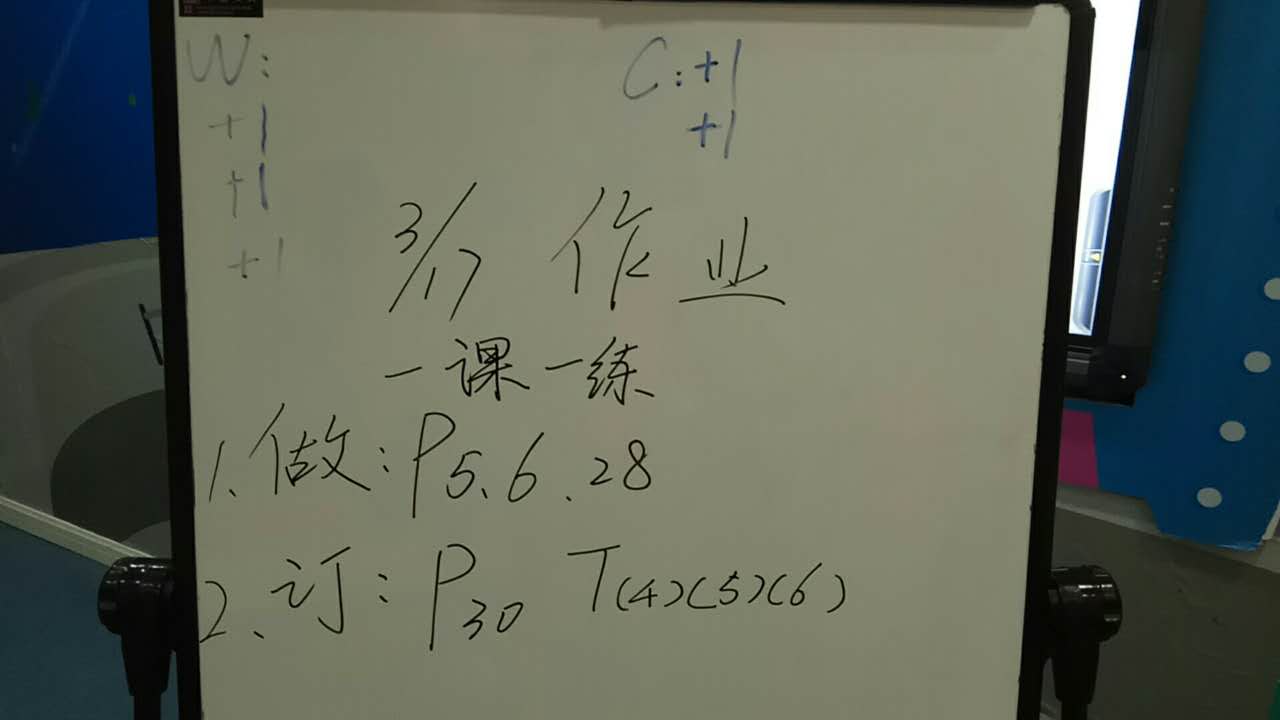 W:
+1
+1
+1
C:+1
+1
3/17 作业
一课一练
1、做:P5、6、28
2、订:P30 T(4)(5)(6)